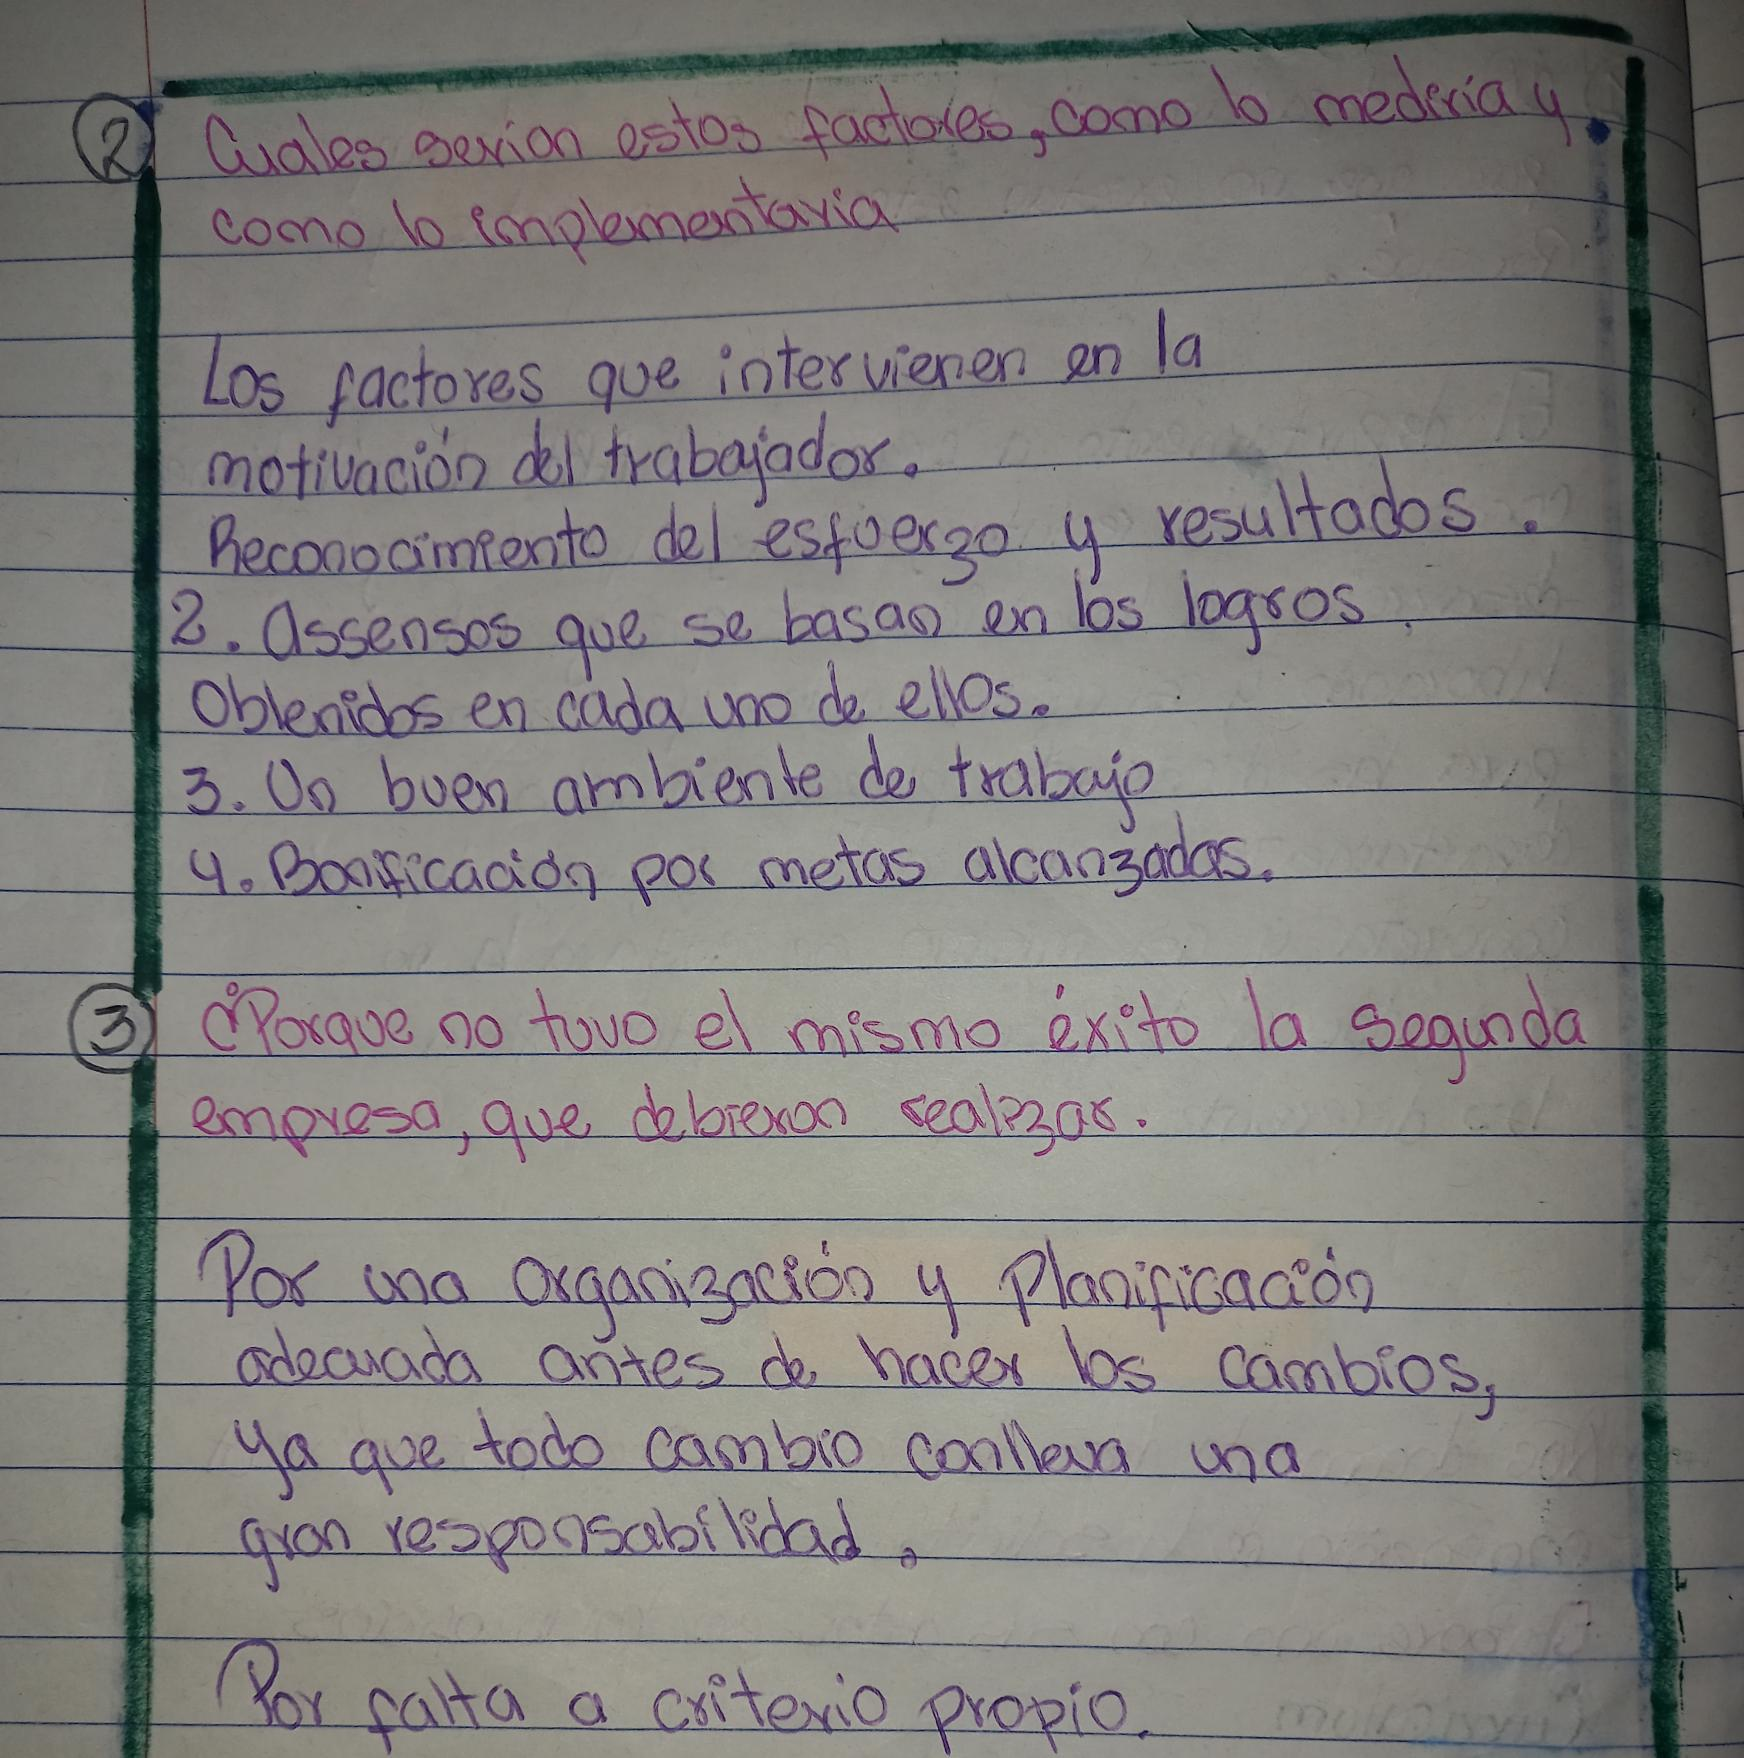 2 Cuales serian estos factores, como lo mediria y.
como lo implementaria
Los factores que intervienen en la
motivación del trabajador.
Reconocimiento del esfuerzo y resultados.
2. Assensos que se basan en los logros
Obtenidos en cada uno de ellos.
3. Un buen ambiente de trabajo
4. Bonificación por metas alcanzadas.
3 ¿Porque no tuvo el mismo éxito la segunda
empresa, que debieron realizar.
Por una Organización y Planificación
adecuada antes de hacer los cambios,
ya que todo cambio conlleva una
gran responsabilidad.
Por falta a criterio propio.